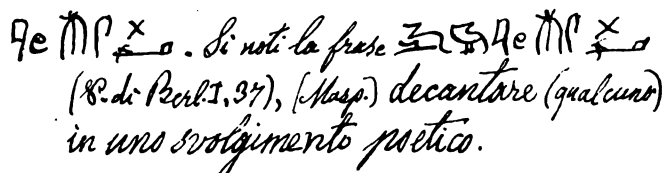 . Si noti la frase
(P. di Berl. I, 37), (Masp.) decantare (qualcuno)
in uno svolgimento poetico.